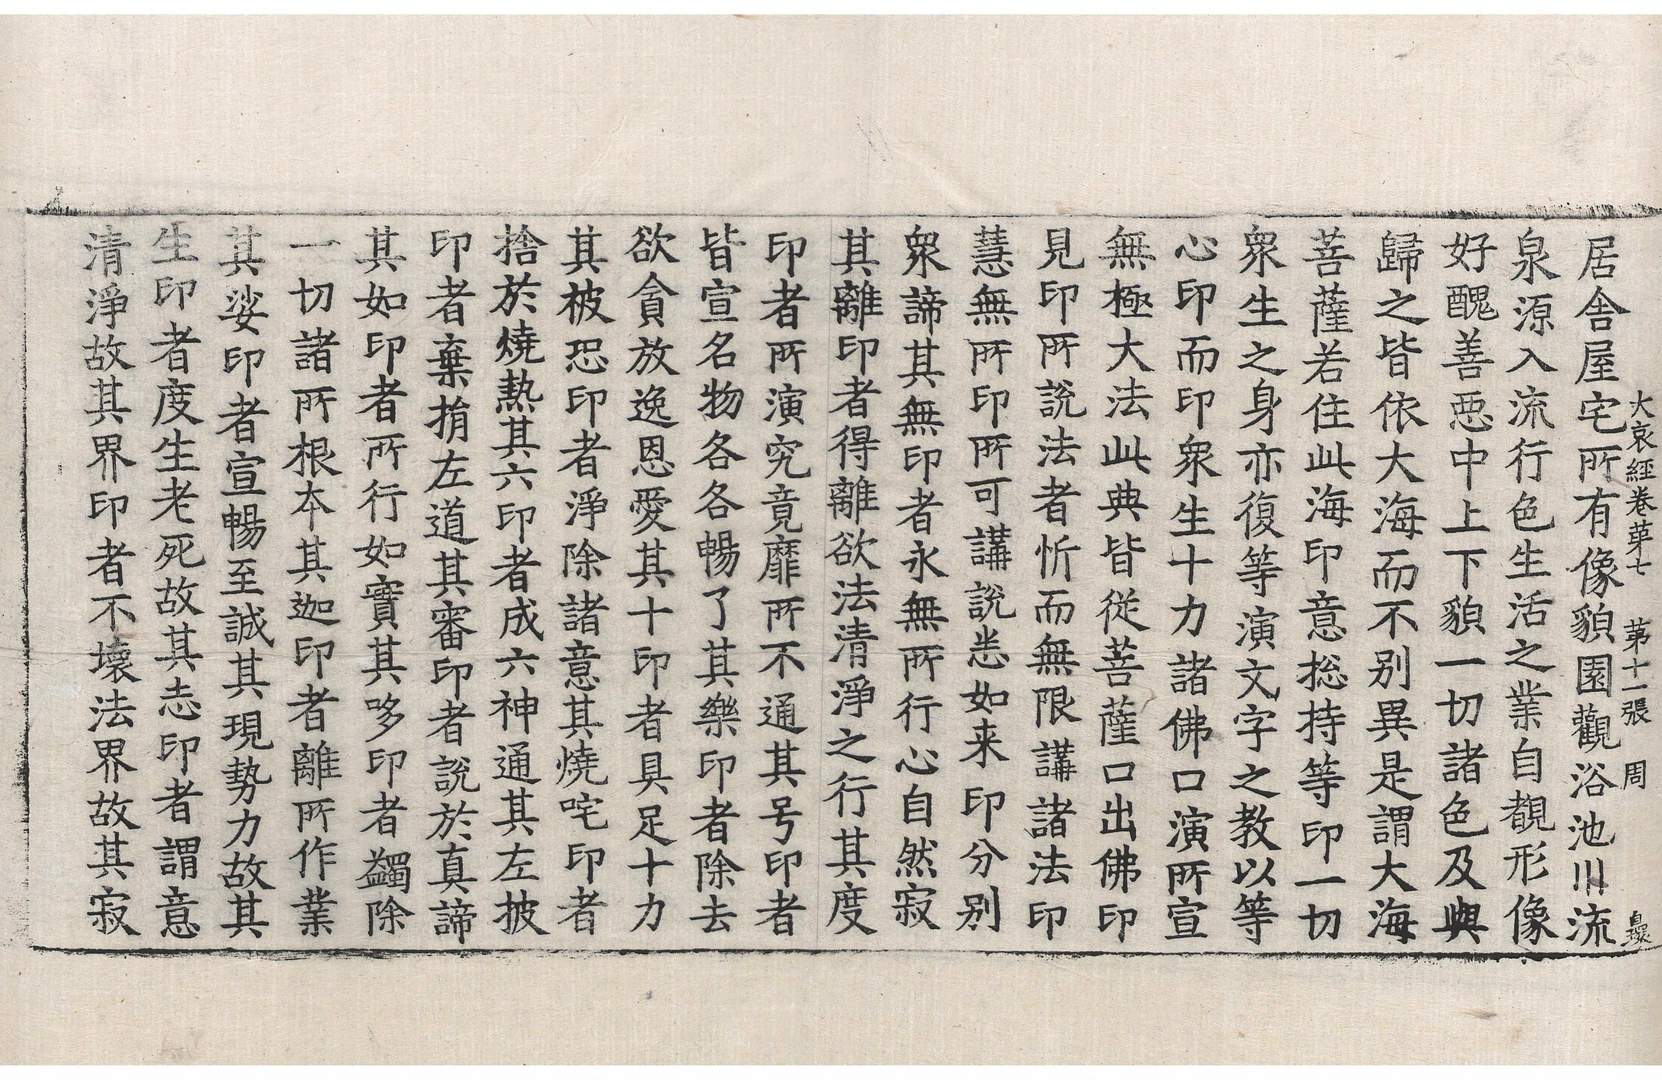 大哀經卷苐七　苐十一張　周
居舎屋宅所有像貌園觀浴池川流
泉源入流行色生活之業自覩形像
好醜善惡中上下貌一切諸色及與
歸之皆依大海而不别異是謂大海
菩薩若住此海印意惣持等印一切
衆生之身亦復等演文字之教以等
心印而印衆生十力諸佛口演所宣
無極大法此典皆從菩薩口出佛印
見印所説法者忻而無限講諸法印
慧無所印所可講說悉如来印分别
衆諦其無印者永無所行心自然寂
其離印者得離欲法清淨之行其度
印者所演究竟靡所不通其号印者
皆宣名物各各暢了其樂印者除去
欲貪放逸恩愛其十印者具足十力
其被恐印者淨除諸意其燒咤印者
捨於燒熱其六印者成六神通其左披
印者棄捐左道其審印者說於真諦
其如印者所行如實其哆印者蠲除
一切諸所根本其迦印者離所作業
其娑印者宣暢至誠其現勢力故其
生印者度生老死故其志印者謂意
清淨故其界印者不壞法界故其寂